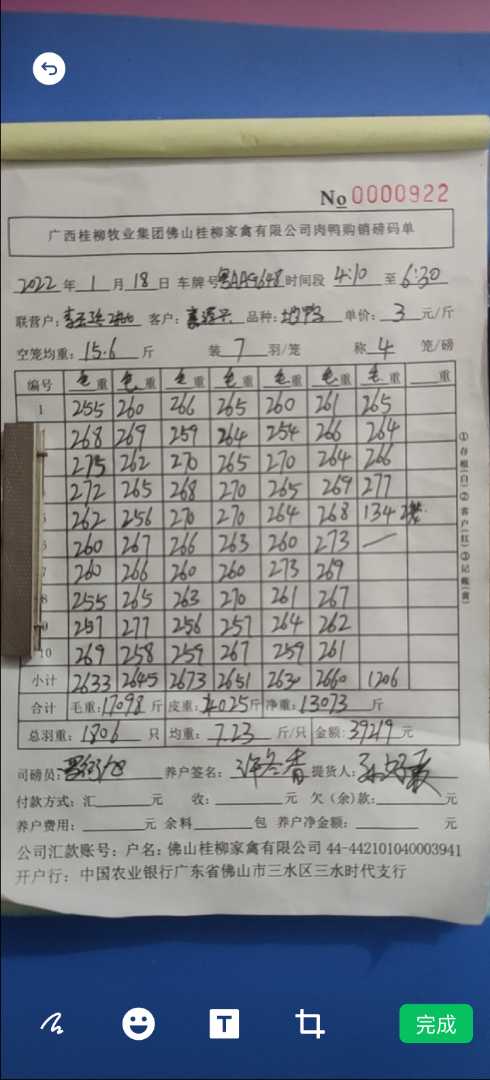 No 0000922
广西桂柳牧业集团佛山桂柳家禽有限公司肉鸭购销磅码单
2022 年 1 月 18 日 车牌号 粤AA9648 时间段 4:10 至 6:30
联营户: 客户: 品种: 单价: 3 元/斤
空笼均重: 15.6 斤 装 7 羽/笼 称 4 笼/磅
编号 毛重 毛重 毛重 毛重 毛重 毛重 毛重 重
1 255 260 266 265 260 261 265
268 269 259 264 254 266 264
275 262 270 265 270 264 266
272 265 268 270 265 269 277
262 256 270 270 264 268 134 2笼
260 267 266 263 260 273 —
260 266 260 260 273 269
8 255 265 263 270 261 267
9 257 277 256 257 264 262
10 269 258 259 267 259 261
小计 2633 2645 2673 2651 2630 2660 1206
合计 毛重: 17098 斤 皮重: 4025 斤 净重: 13073 斤
总羽重: 1806 只 均重: 7.23 斤/只 金额: 39219 元
司磅员: 养户签名: 提货人:
付款方式: 汇 元 收: 元 欠(余)款: 元
养户费用: 元 余料 包 养户净金额: 元
公司汇款账号: 户名: 佛山桂柳家禽有限公司 44-442101040003941
开户行: 中国农业银行广东省佛山市三水区三水时代支行
①存根(白)②客户(红)③记账(黄)
完成